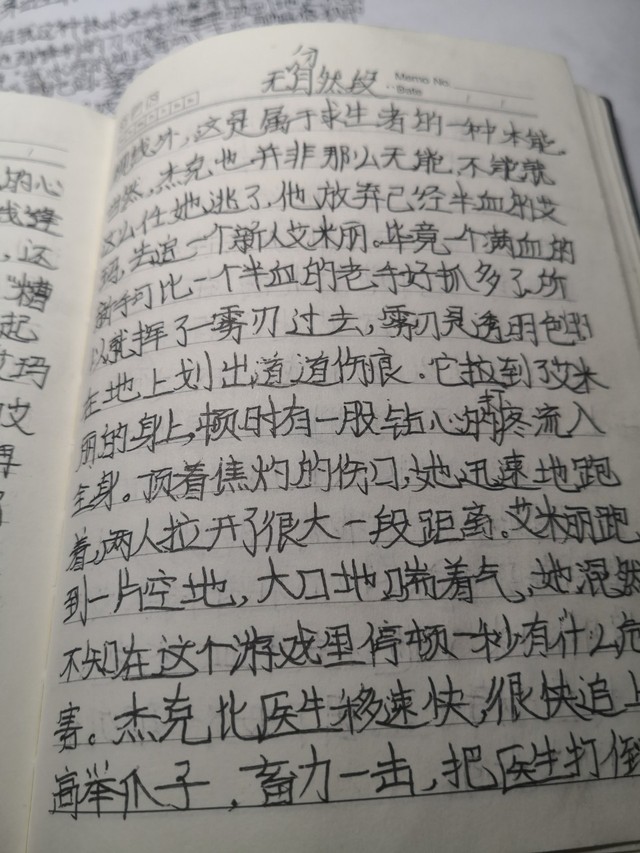 无分自然段
Memo No.
Date
视线外，这是属于求生者的一种本能。
当然，杰克也并非那么无能，不能就
这么任她逃了，他放弃已经半血的艾
玛，去追一个新人艾米丽。毕竟一个满血的
新手可比一个半血的老手好抓多了，所
以就挥了一雾刃过去，雾刃是透明色的
在地上划出道道伤痕。它拉到了艾米
丽的身上，顿时有一股钻心的疼流入
全身。顶着焦灼的伤口，她迅速地跑
着，两人拉开了很大一段距离。艾米丽跑
到一片空地，大口地喘着气，她浑然
不知在这个游戏里停顿一秒有什么危
害。杰克比医生移速快，很快追上
高举爪子，畜力一击，把医生打倒
的心
，还
糟
起
艾玛